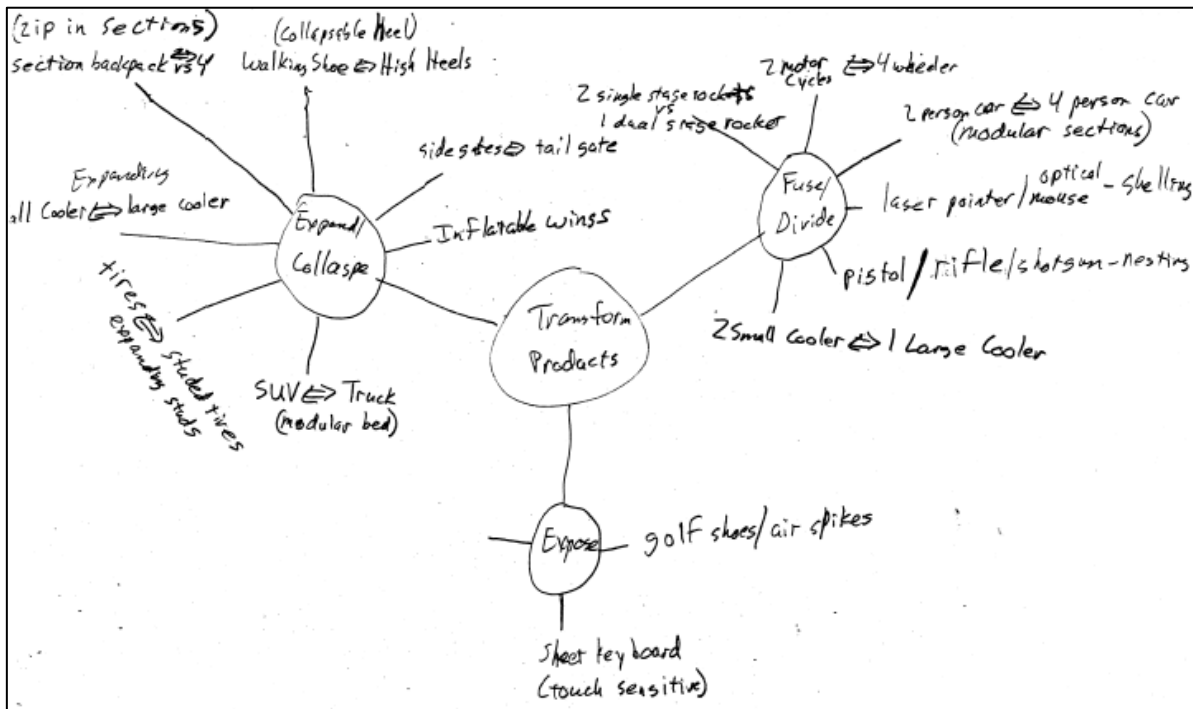 (zip in sections)
section backpack ⇔ vs 4
(collapsable Heel)
Walking Shoe ⇔ High Heels
side gates ⇔ tail gate
Expanding
all Cooler ⇔ large cooler
Inflatable wings
Expand/
Collaspe
tires ⇔ studed tires
expanding studs
SUV ⇔ Truck
(modular bed)
Transform
Products
2 motor
cycles ⇔ 4 wheeler
2 single stage rockets
vs
1 dual stage rocker
2 person car ⇔ 4 person car
(modular sections)
Fuse/
Divide
laser pointer/optical mouse - shelling
pistol/rifle/shotgun-nesting
2 Small Cooler ⇔ 1 Large Cooler
Expose
golf shoes/air spikes
sheet keyboard
(touch sensitive)